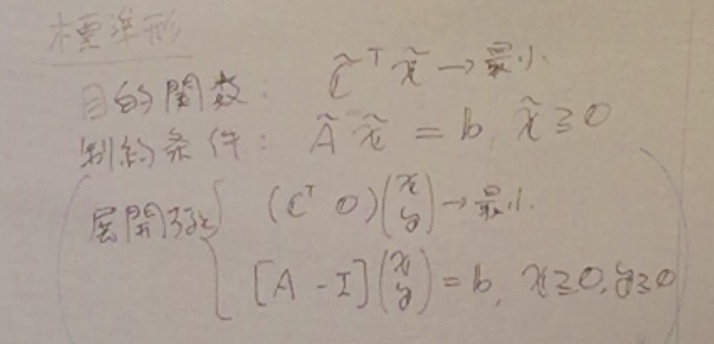 標準形
目的関数: C̃ᵀ x̃ → 最小.
制約条件: Ã x̃ = b, x̃ ≥ 0
展開形 { (Cᵀ 0)(x y) → 最小.
[A -I](x y) = b, x≥0, y≥0